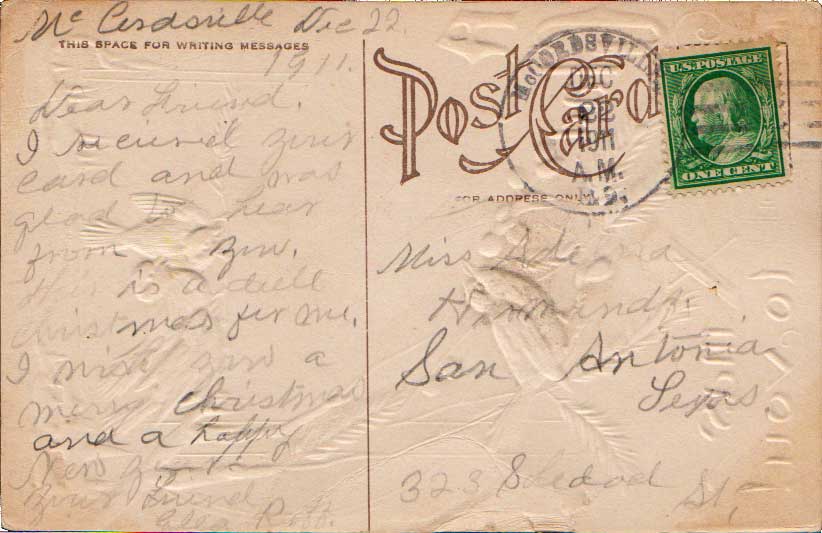 Mc Cordsville Dec 22.
THIS SPACE FOR WRITING MESSAGES
1911.
Dear Friend.
I recieved your
card and was
glad to hear
from you.
this is a dull
christmas for me.
I wish you a
merry christmas
and a happy
New year
your friend
Ruff.
Post Card
FOR ADDRESS ONLY
McCORDSVILLE
DEC
22
1911
A.M.
U.S. POSTAGE
ONE CENT
Miss
San Antonia
Texas.
323 Soledad
St,